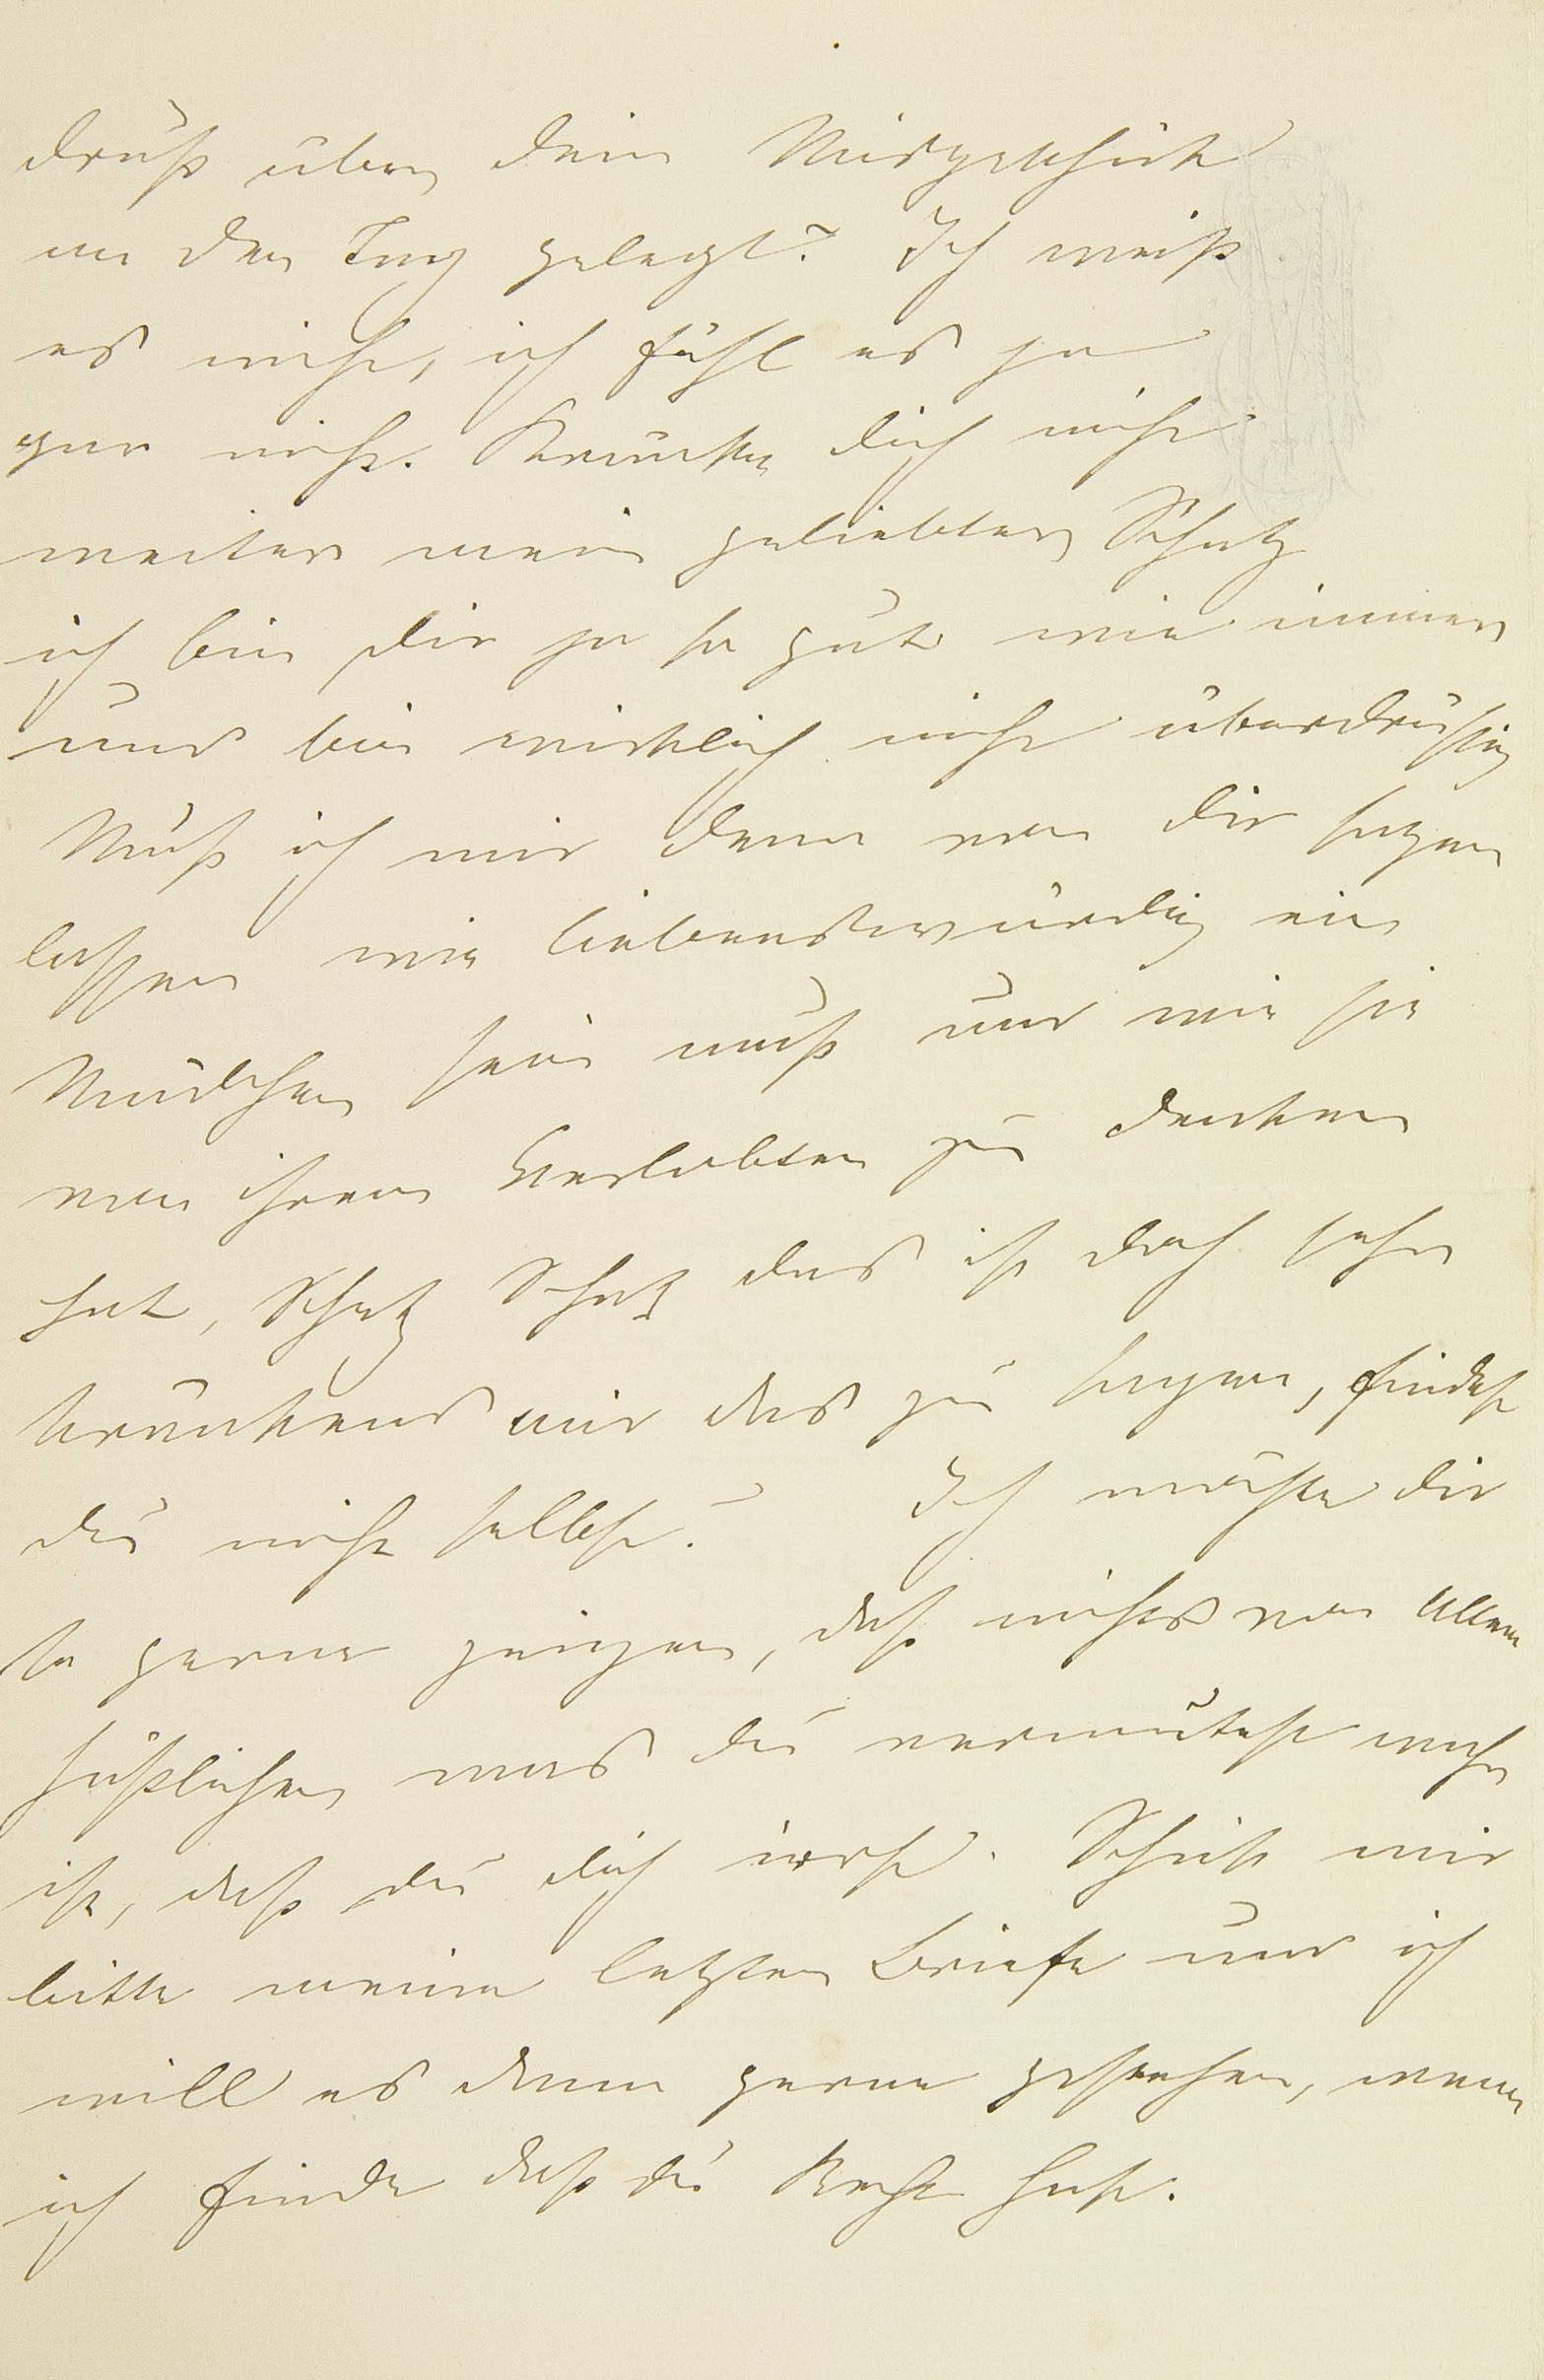 druß über dein Misgeschick
an den Tag gelegt? Ich weiß
es nicht, ich fühl es ja
gar nicht. Kränke dich nicht
weiter mein geliebter Schatz
ich bin dir ja so gut wie immer
und bin wirklich nicht überdrüssig
Muß ich mir denn von dir sagen
lassen wie liebenswürdig ein
Mädchen sein muß und wie sie
von ihrem Verlobten zu denken
hat, Schatz Schatz das ist doch sehr
kränkend mir das zu sagen, findest
du nicht selbst? Ich möchte dir
so gerne zeigen, daß nichts von Allem
häßlichen was du vermutest wahr
ist, daß du dich irrst. Schick mir
bitte meine letzten Briefe und ich
will es dann gerne gestehen, wenn
ich finde daß du Recht hast.